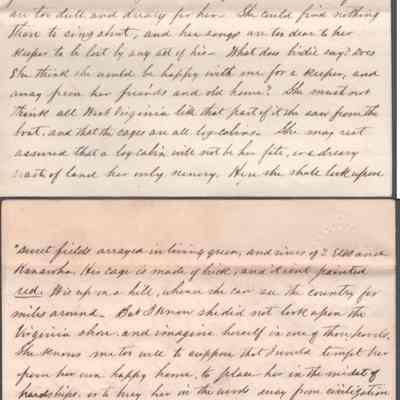 are too dull and dreary for her. She could find nothing
there to sing about, and her songs are too dear to her
keeper to be lost by any act of his. What does birdie say? Does
She think she would be happy with me for a keeper, and
away from her friends and old home? She must not
think all West Virginia like that part of it she saw from the
boat, and that the cages are all log cabins. She may rest
assured that a log cabin will not be her fate, or a dreary
of land her only scenery. Here she shall look upon
"sweet fields arrayed in living green, and rivers of" Elk and
Kanawha. His cage is made of brick, and isn't painted
red. It is up on a hill, where she can see the country for
miles around. But I know she did not look upon the
Virginia shore and imagine herself in one of those
She knows me too well to suppose that I would tempt her
from her own happy home, to place her in the midst of
hardships, or to bury her in the woods away from civilization